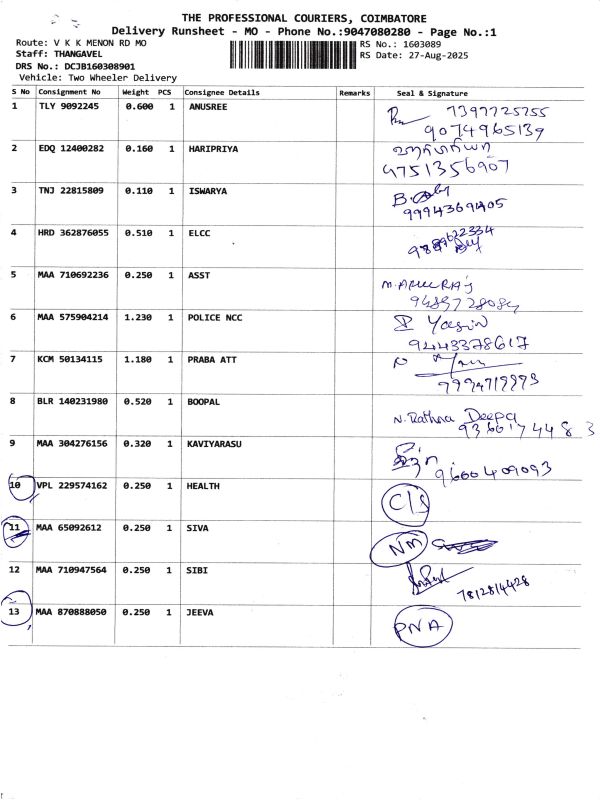 THE PROFESSIONAL COURIERS, COIMBATORE
Delivery Runsheet - MO - Phone No.:9047080280 - Page No.:1
Route: V K K MENON RD MO
RS No.: 1603089
Staff: THANGAVEL
RS Date: 27-Aug-2025
DRS No.: DCJB160308901
Vehicle: Two Wheeler Delivery
S No Consignment No Weight PCS Consignee Details Remarks Seal & Signature
1 TLY 9092245 0.600 1 ANUSREE 7397725755
9074965139
2 EDQ 12400282 0.160 1 HARIPRIYA ஹரிப்பிரியா
9751356907
3 TNJ 22815809 0.110 1 ISWARYA
9994369405
4 HRD 362876055 0.510 1 ELCC
5 MAA 710692236 0.250 1 ASST M. ARULRAJ
9489728084
6 MAA 575904214 1.230 1 POLICE NCC Yasin
9443378617
7 KCM 50134115 1.180 1 PRABA ATT
9994719993
8 BLR 140231980 0.520 1 BOOPAL N. Rathna Deepa
9360174483
9 MAA 304276156 0.320 1 KAVIYARASU
9600409093
10 VPL 229574162 0.250 1 HEALTH C/S
11 MAA 65092612 0.250 1 SIVA NM
12 MAA 710947564 0.250 1 SIBI
7812814428
13 MAA 870888050 0.250 1 JEEVA PNA